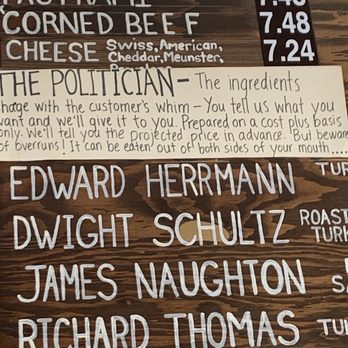 PASTRAMI 7.48
CORNED BEEF 7.48
CHEESE Swiss, American, Cheddar, Meunster, 7.24
THE POLITICIAN - The ingredients
change with the customer's whim - You tell us what you
want and we'll give it to you. Prepared on a cost plus basis
only. We'll tell you the projected price in advance. But beware
of overruns! It can be eaten out of both sides of your mouth....
EDWARD HERRMANN TUR
DWIGHT SCHULTZ ROAST TURK
JAMES NAUGHTON
RICHARD THOMAS TU